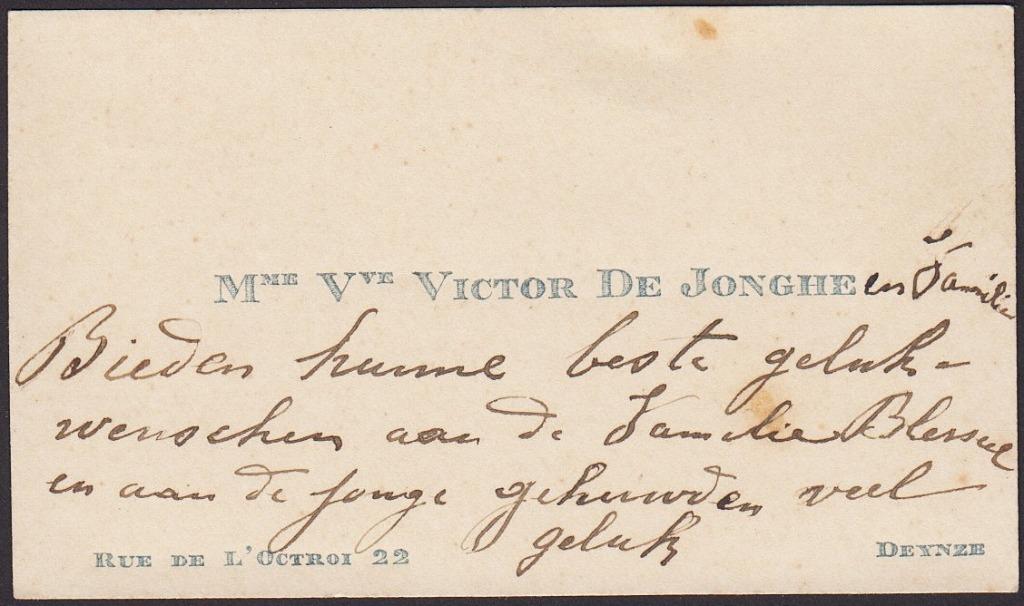 Mme Vve Victor De Jonghe en Familie
Bieden hunne beste geluk-
wenschen aan de Familie
en aan de jonge gehuwden veel
geluk
Rue de L'Octroi 22 Deynze